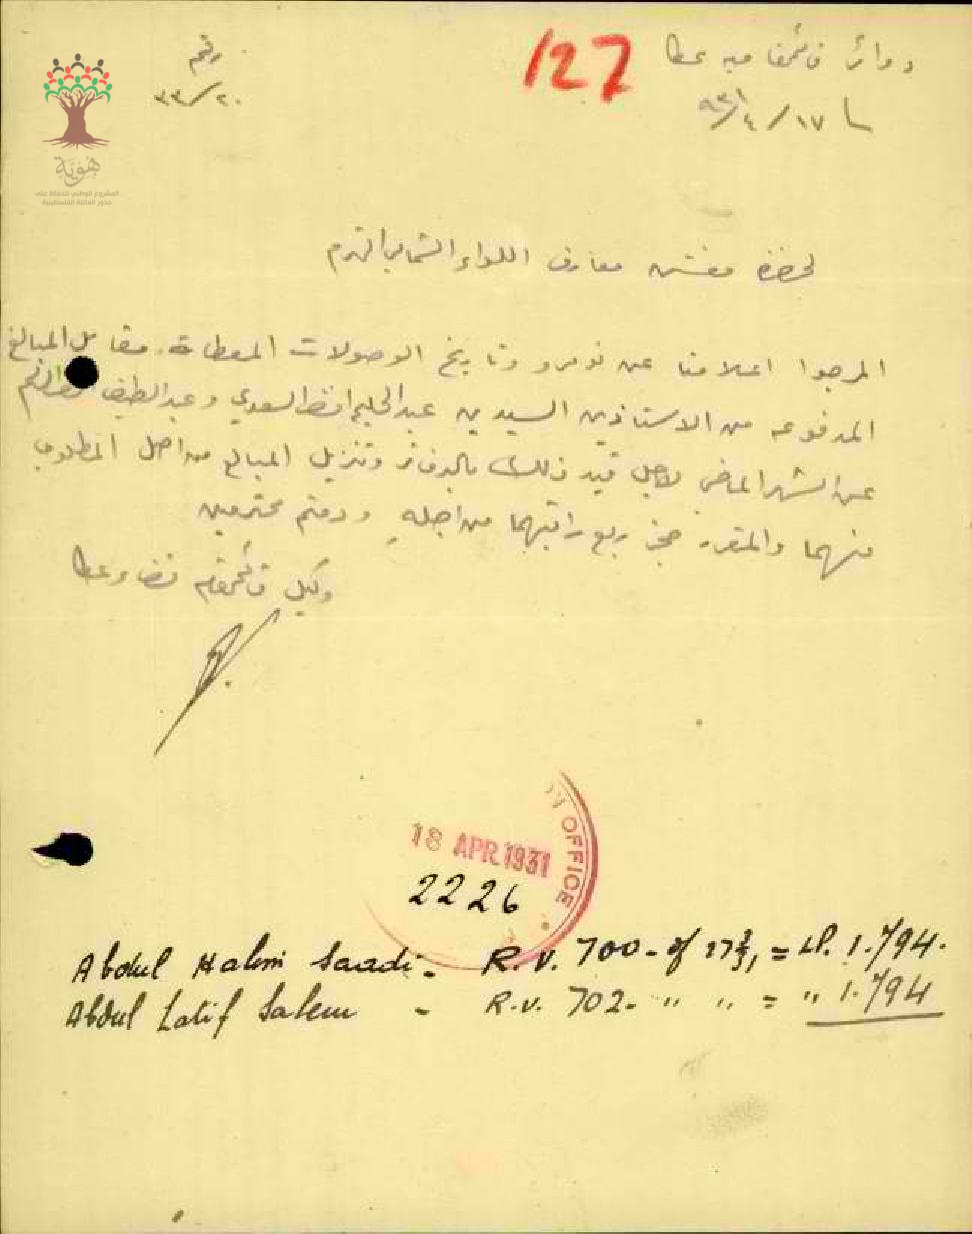 دوائر قائمقامية عكا
127
رقم
١٧/٤/٩٣١
٢٠/٣٣
هوية
المشروع الوطني للحفاظ على
جذور العائلة الفلسطينية
لحضرة مفتش معارف اللواء الشمالي المحترم
المرجوا اعلامنا عن نومرو وتاريخ الوصولات المعطاة مقابل المبالغ
المدفوعه من الاستاذين السيدين عبد الحليم السعدي وعبد اللطيف
عن الشهر الماضي لاجل قيد ذلك بالدفاتر وتنزيل المبالغ من اصل المطلوب
منهما والمتقرر حجز ربع راتبهما من اجله ودمتم محترمين
وكيل قائمقام قضاء عكا
OFFICE
18 APR 1931
2226
Abdul Halim Saadi - R.V. 700 - of = LP. 1.794.
Abdul Latif Salem - R.V. 702 - " " = " 1.794